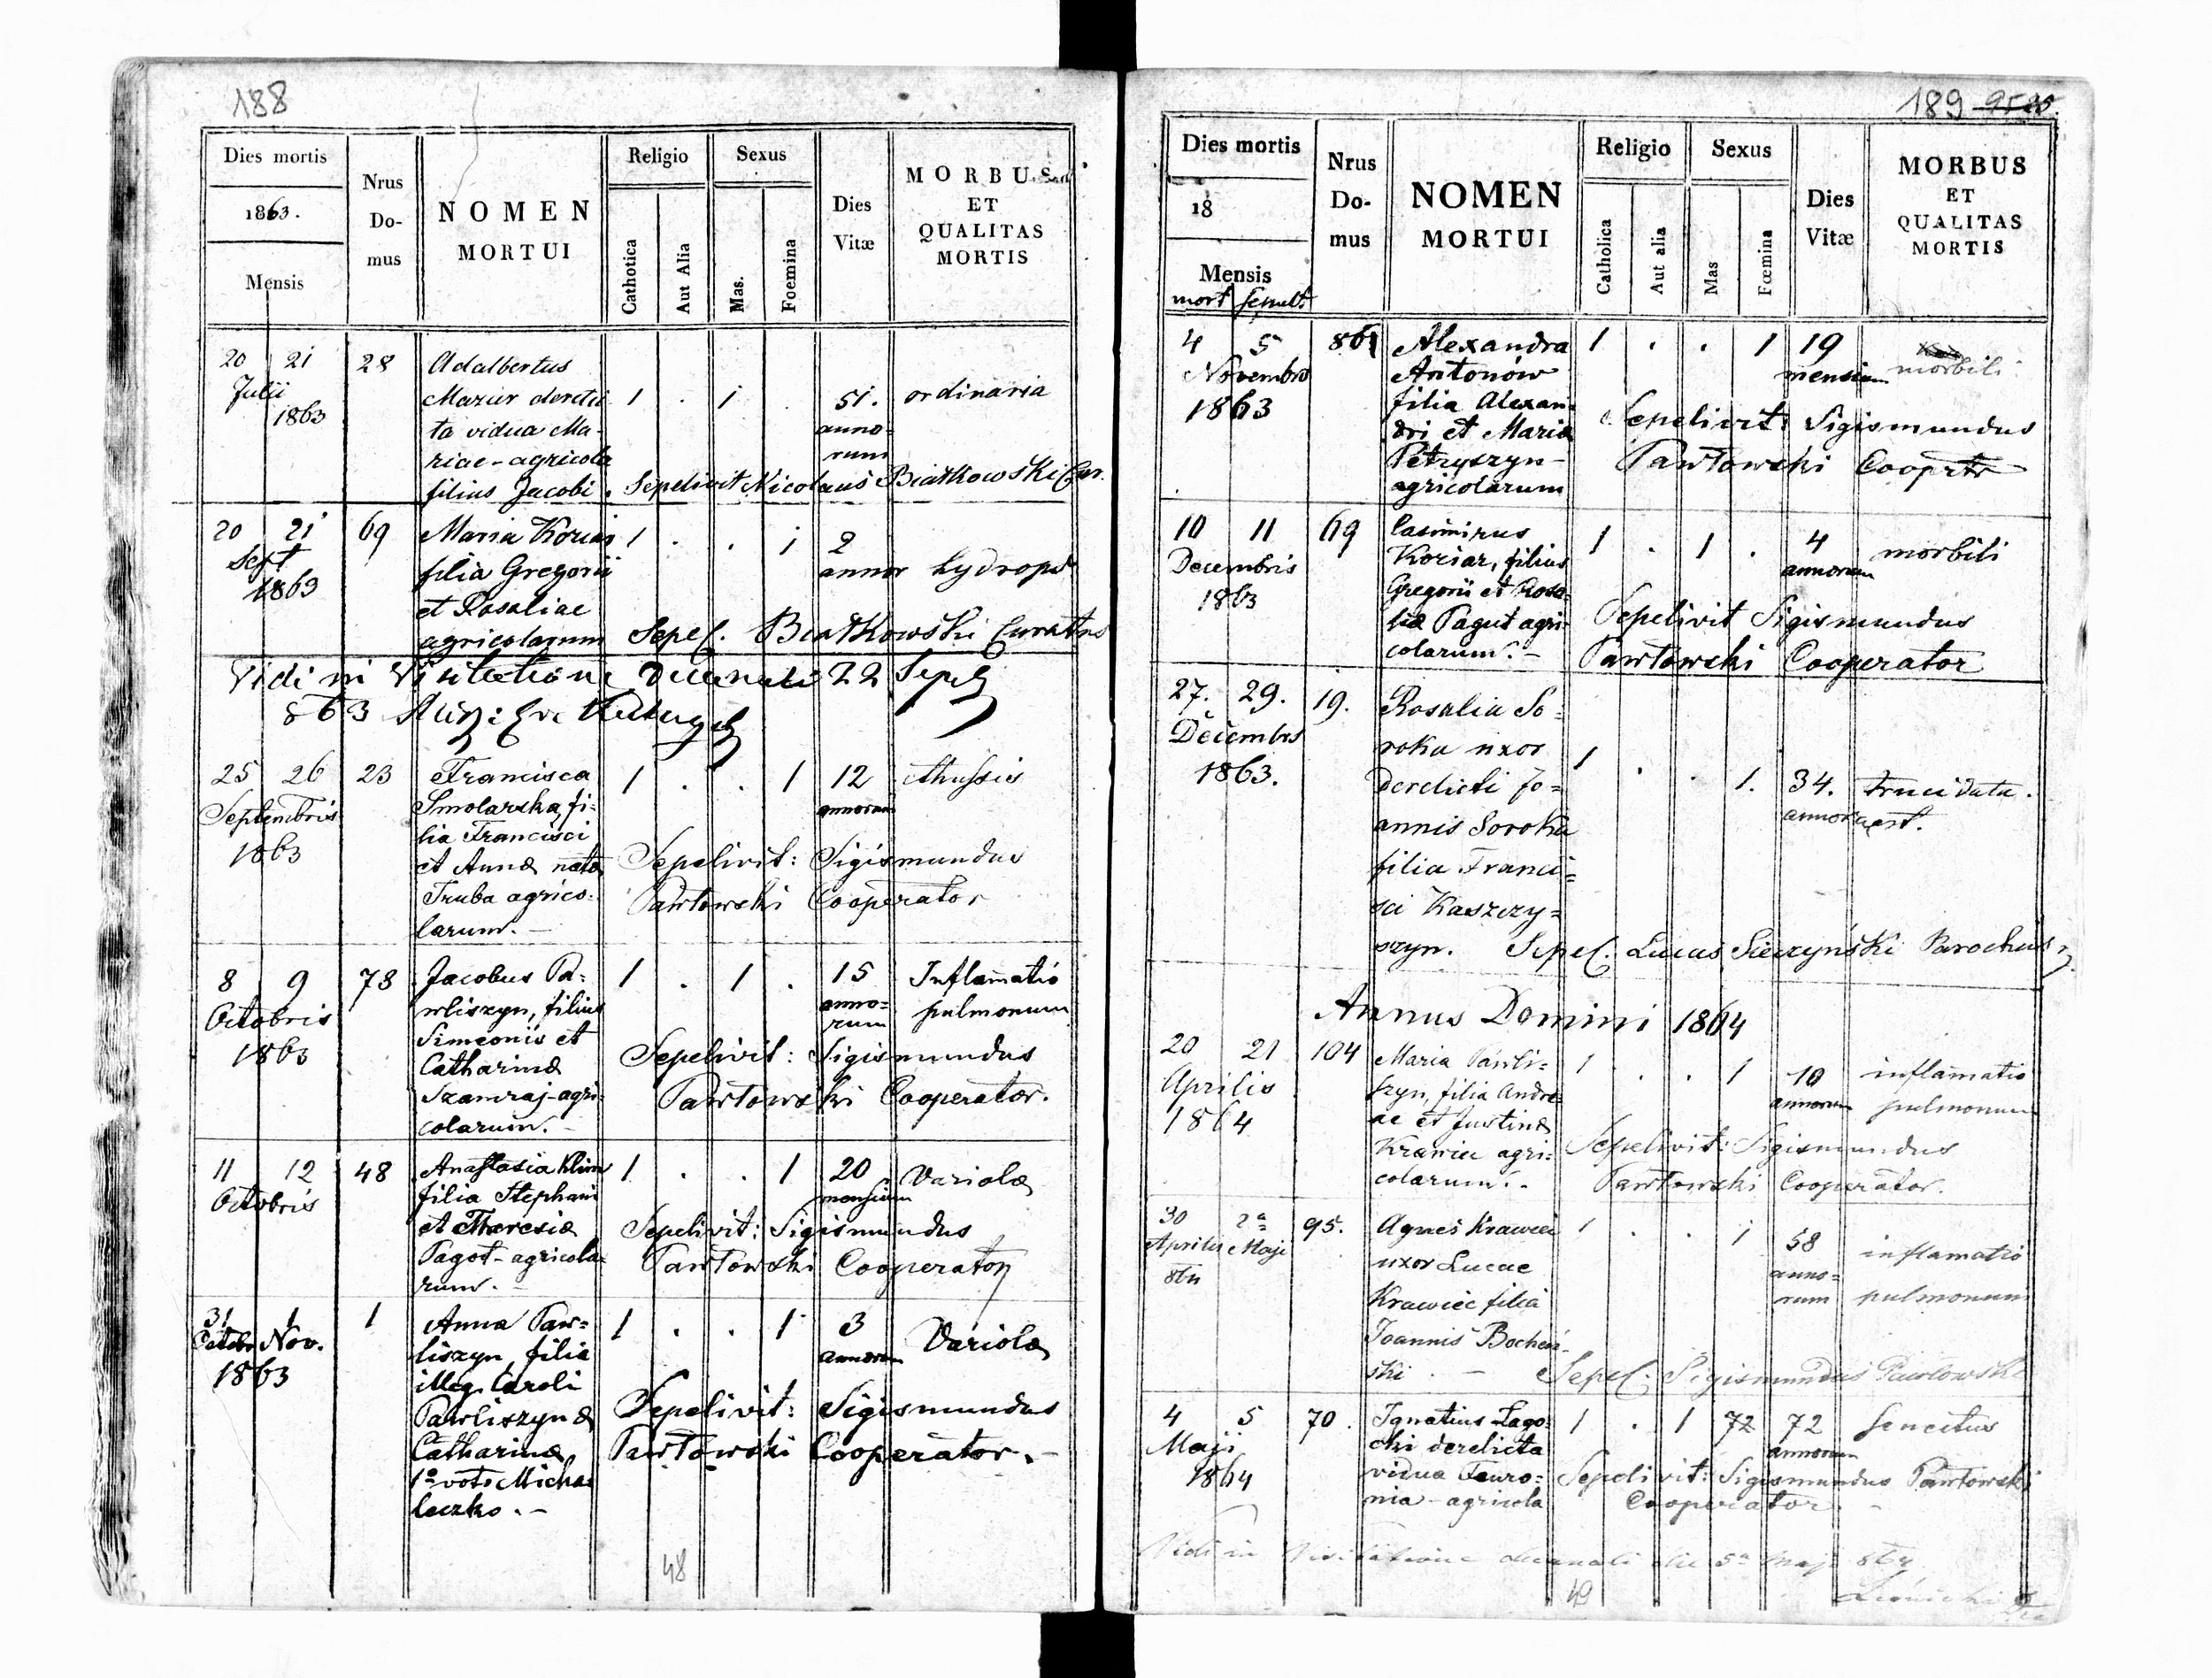 188
Dies mortis
1863.
Mensis
Nrus
Do-
mus
NOMEN
MORTUI
Religio
Cathotica
Aut Alia
Sexus
Mas.
Foemina
Dies
Vitæ
MORBUS
ET
QUALITAS
MORTIS
20 21 28 Adalbertus
Julii Mazur derelic 1 . 1 . 51. ordinaria
1863 ta vidua Ma- anno-
riae - agricola rum
filius Jacobi. Sepelivit Nicolaus Białkowski Cur.
20 21 69 Maria Koziar 1 . . 1 2
Sept filia Gregorii annor hydrops
1863 et Rosaliae
agricolarum Sepel. Białkowski Curatus
Vidi in Visitatione Decanali 22 Sept
863
25 26 23 Francisca 1 . . 1 12 thussis
Septembris Smolarska, fi- annorum
1863 lia Francisci
et Annæ natæ Sepelivit: Sigismundus
Truba agrico- Pawłowski Cooperator
larum. -
8 9 78 Jacobus Pa- 1 . 1 . 15 Inflamatio
Octobris wliszyn, filius anno- pulmonum
1863 Simeonis et rum
Catharinæ Sepelivit: Sigismundus
Szamraj - agri- Pawłowski Cooperator.
colarum. -
11 12 48 Anastasia Klim 1 . . 1 20 Variolæ
Octobris filia Stephani mensium
et Theresiæ Sepelivit: Sigismundus
Pagot - agricola- Pawłowski Cooperator
rum. -
31 1 1 Anna Paw- 1 . . 1 3 Variolæ
Octobr Nov. liszyn, filia annorum
1863 illeg. Caroli
Pawliszyn & Sepelivit: Sigismundus
Catharinæ Pawłowski Cooperator. -
1º voto Micha
leczko. -
48
189 95
Dies mortis
18
Mensis
mort sepult
Nrus
Do-
mus
NOMEN
MORTUI
Religio
Catholica
Aut alia
Sexus
Mas
Fœmina
Dies
Vitæ
MORBUS
ET
QUALITAS
MORTIS
4 5 Alexandra 1 . . 1 19
Novembris Antonów mensium morbili
1863 filia Alexan-
dri et Mariæ Sepelivit: Sigismundus
Petryszyn - Pawłowski Cooprtr
agricolarum
10 11 69 Casimirus 1 . 1 . 4 morbili
Decembris Koziar, filius annorum
1863 Gregorii et Rosa-
liæ Pagut agri- Sepelivit Sigismundus
colarum. - Pawłowski Cooperator
27. 29. 19. Rosalia So-
Decembrs roka uxor 1 . . 1. 34. trucidata
1863. derelicti Jo- annorum est.
annis Soroka
filia Franci=
sci Kaszczy=
szyn. Sepel. Lucas Sieczyński Parochus
Annus Domini 1864
20 21 104 Maria Pawli- 1 . . 1 10 inflamatio
Aprilis szyn, filia Andre- annorum pulmonum
1864 ae et Justinæ
Krawiec agri- Sepelivit: Sigismundus
colarum. - Pawłowski Cooperator.
30 2ª 95. Agnes Krawiec 1 . . 1 58 inflamatio
Aprilis Maji uxor Lucae anno- pulmonum
864 Krawiec filia rum
Joannis Bocheń-
ski. - Sepel. Sigismundus Pawłowski
4 5 70. Ignatius Łago- 1 . 1 72 72 senectus
Maji cki derelicta annorum
1864 vidua Fewro- Sepelivit: Sigismundus Pawłowski
nia - agricola Cooperator. -
Vidi in Visitatione decanali die 5ª Maji 864
49